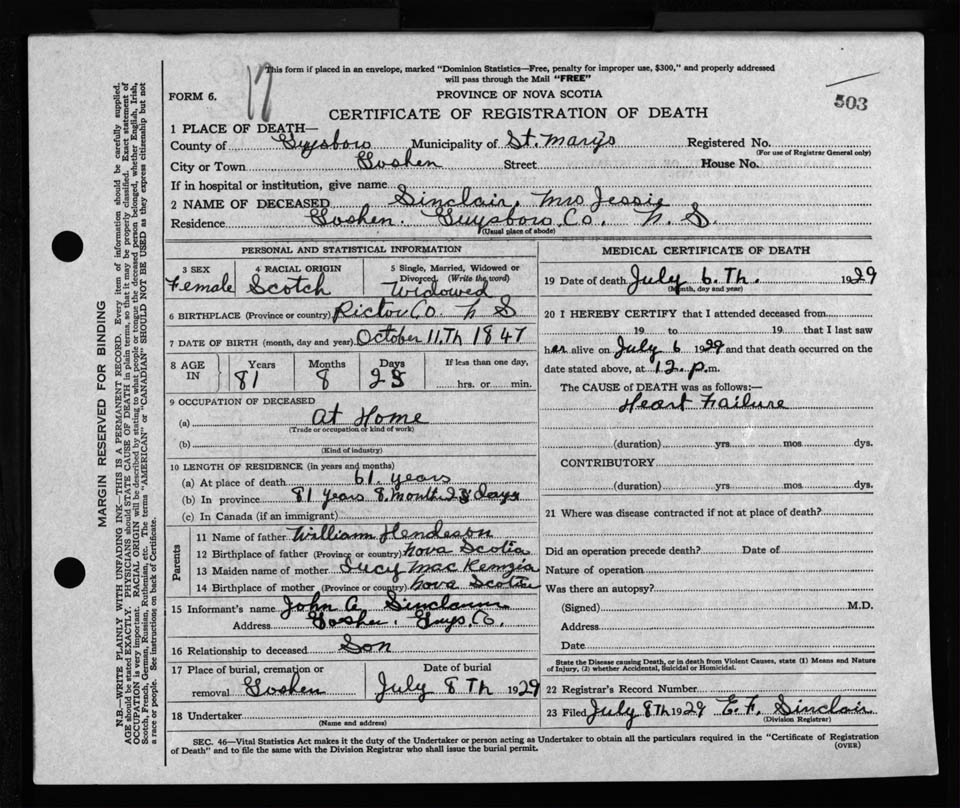 17
This form if placed in an envelope, marked "Dominion Statistics—Free, penalty for improper use, $300," and properly addressed
will pass through the Mail "FREE"
FORM 6.
PROVINCE OF NOVA SCOTIA
503
CERTIFICATE OF REGISTRATION OF DEATH
1 PLACE OF DEATH—
County of Guysboro Municipality of St. Mary's Registered No.
(For use of Registrar General only)
City or Town Goshen Street House No.
If in hospital or institution, give name
2 NAME OF DECEASED Sinclair, Mrs Jessie
Residence Goshen. Guysboro Co. N. S.
(Usual place of abode)
PERSONAL AND STATISTICAL INFORMATION
3 SEX 4 RACIAL ORIGIN 5 Single, Married, Widowed or
Divorced (Write the word)
Female Scotch Widowed
6 BIRTHPLACE (Province or country) Pictou Co. N S
7 DATE OF BIRTH (month, day and year) October 11,Th 1847
8 AGE IN Years Months Days If less than one day,
81 8 25 hrs. or min.
9 OCCUPATION OF DECEASED
(a) At Home
(Trade or occupation or kind of work)
(b)
(Kind of industry)
10 LENGTH OF RESIDENCE (in years and months)
(a) At place of death 61. years
(b) In province 81 years 8 month 25 days
(c) In Canada (if an immigrant)
Parents
11 Name of father William Hendeson
12 Birthplace of father (Province or country) Nova Scotia
13 Maiden name of mother Lucy MacKenzia
14 Birthplace of mother (Province or country) Nova Scotia
15 Informant's name John A. Sinclair
Address Goshen. Guys. Co.
16 Relationship to deceased Son
17 Place of burial, cremation or Date of burial
removal Goshen July 8 Th 1929
18 Undertaker
(Name and address)
MEDICAL CERTIFICATE OF DEATH
19 Date of death July 6.Th. 1929
(Month, day and year)
20 I HEREBY CERTIFY that I attended deceased from
19 to 19 that I last saw
her alive on July 6 1929 and that death occurred on the
date stated above, at 12.p.m.
The CAUSE of DEATH was as follows:—
Heart Failure
(duration) yrs. mos. dys.
CONTRIBUTORY
(duration) yrs. mos. dys.
21 Where was disease contracted if not at place of death?
Did an operation precede death? Date of
Nature of operation
Was there an autopsy?
(Signed) M.D.
Address
Date
State the Disease causing Death, or in death from Violent Causes, state (1) Means and Nature
of Injury, (2) whether Accidental, Suicidal or Homicidal.
22 Registrar's Record Number
23 Filed July 8Th 1929 E. F. Sinclair
(Division Registrar)
SEC. 46—Vital Statistics Act makes it the duty of the Undertaker or person acting as Undertaker to obtain all the particulars required in the "Certificate of Registration
of Death" and to file the same with the Division Registrar who shall issue the burial permit.
(OVER)
MARGIN RESERVED FOR BINDING
N.B.—WRITE PLAINLY WITH UNFADING INK—THIS IS A PERMANENT RECORD. Every item of information should be carefully supplied.
AGE should be stated EXACTLY. PHYSICIANS should STATE CAUSE OF DEATH in plain terms, so that it may be properly classified. Exact statement of
OCCUPATION is very important. RACIAL ORIGIN will be described by stating to what people or tongue the deceased person belonged, whether English, Irish,
Scotch, French, German, Russian, Ruthenian, etc. The terms "AMERICAN" or "CANADIAN" SHOULD NOT BE USED as they express citizenship but not
a race or people. See instructions on back of Certificate.